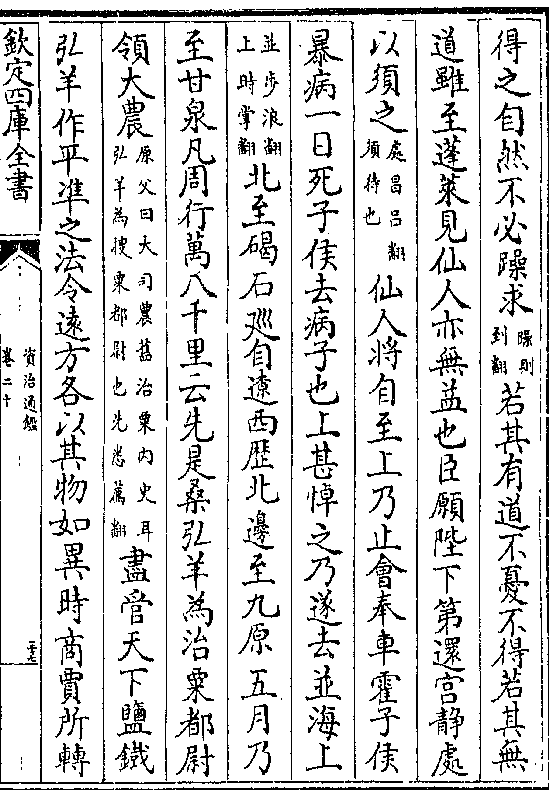 得之自然不必躁求躁則到翻若其有道不憂不得若其無
道雖至蓬萊見仙人亦無益也臣願陛下第還宫静處
以須之處昌吕翻須待也仙人將自至上乃止會奉車霍子侯
暴病一日死子侯去病子也上甚悼之乃遂去並海上
並步浪翻上時掌翻北至碣石廵自遼西歴北邊至九原五月乃
至甘泉凡周行萬八千里云先是桑弘羊為治粟都尉
領大農原父曰大司農舊治粟内史耳弘羊為搜粟都尉也先悉薦翻盡管天下鹽鐵
弘羊作平準之法令遠方各以其物如異時商賈所轉
欽定四庫全書
資治通鑑
卷二十
二十七